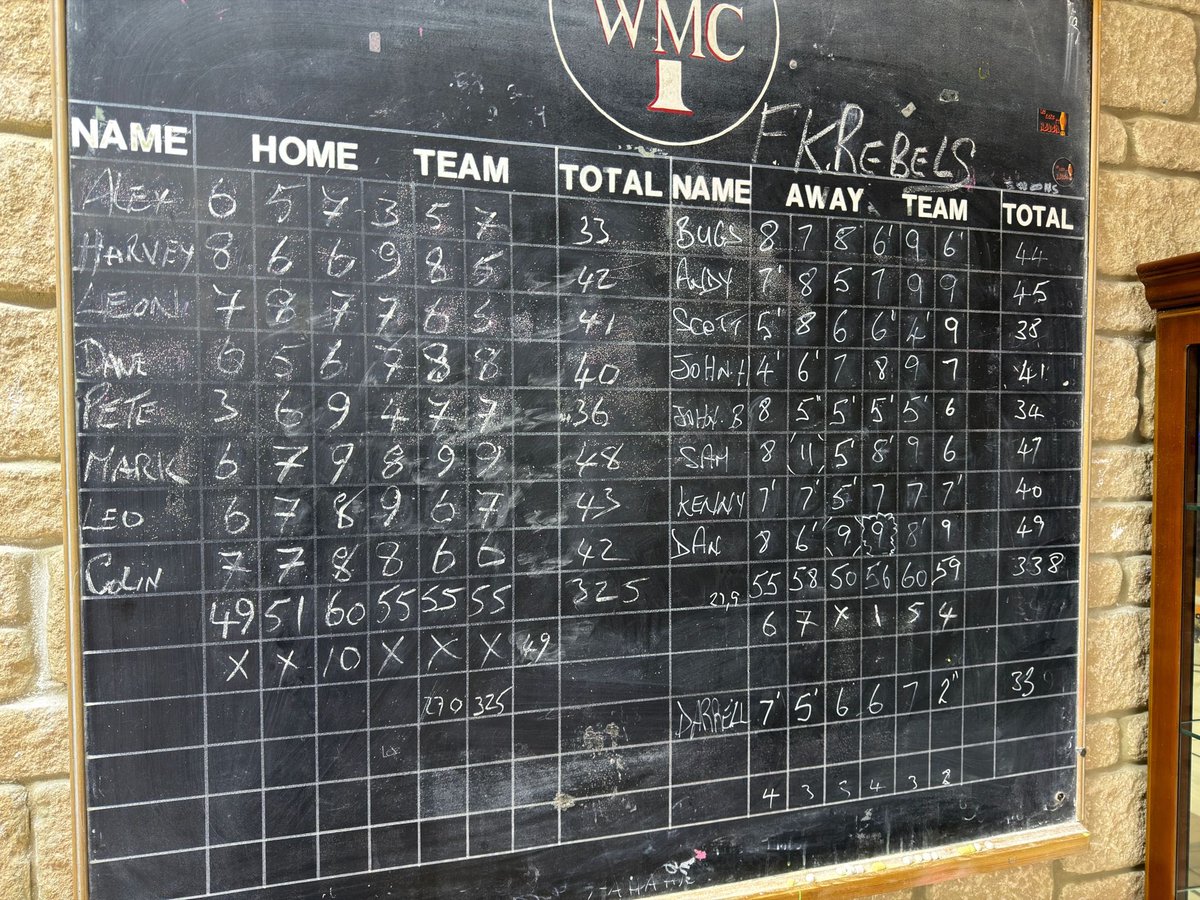 WMC
1
F.K.REBELS
NAME HOME TEAM TOTAL NAME AWAY TEAM TOTAL
ALEX 6 5 7 3 5 7 33 BUGS 8 7 8 6' 9 6' 44
HARVEY 8 6 6 9 8 5 42 ANDY 7' 8 5 7 9 9 45
LEON 7 8 7 7 6 41 SCOTT 5' 8 6 6' 4' 9 38
DAVE 6 5 6 7 8 8 40 JOHN.H 4' 6' 7 8 9 7 41.
PETE 3 6 9 4 7 7 36 JOHN.B 8 5" 5' 5' 5' 6 34
MARK 6 7 9 8 9 9 48 SAM 8 (11) 5' 8' 9 6 47
LEO 6 7 8 9 6 7 43 KENNY 7' 7' 5' 7 7 7' 40
COLIN 7 7 8 8 6 6 42 DAN 8 6' (9) 9 8' 9 49
49 51 60 55 55 55 325 55 58 50 56 60 59 338
X X 10 X X X 49 6 7 X 1 5 4
270 325 DARRELL 7' 5' 6 6 7 2" 33
4 3 3 4 3 2